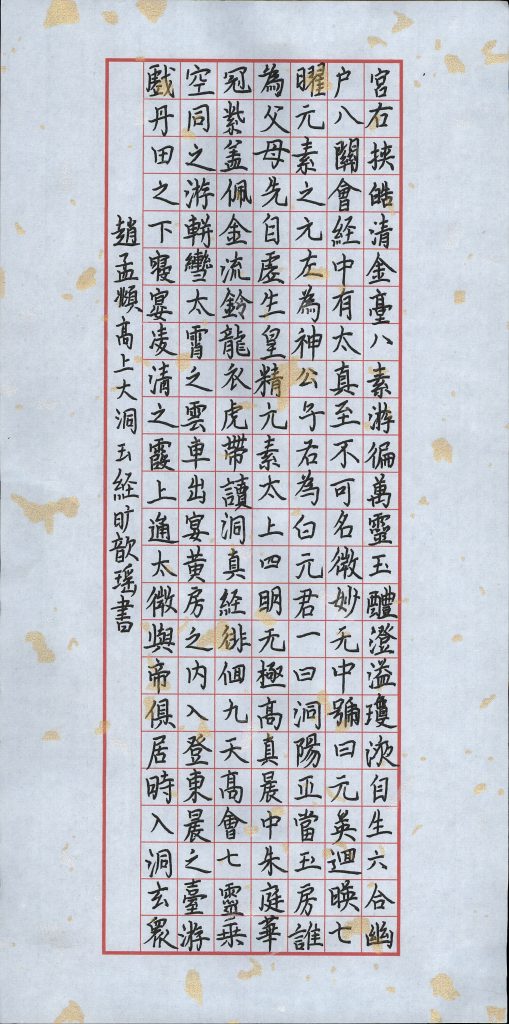 宮右挾皓清金臺八素游徧萬靈玉醴澄溢瓊液自生六合幽
户八關會經中有太真至不可名微妙无中號曰元英迴暎七
曜元素之元左為神公子右為白元君一曰洞陽正當玉房誰
為父母先自虛生皇精元素太上四明无極高真晨中朱庭華
冠紫盖佩金流鈴龍衣虎帶讀洞真經徘徊九天高會七靈乘
空同之游軿轡太霄之雲車出宴黃房之內入登東晨之臺游
戲丹田之下寢宴凌清之霞上通太微與帝俱居時入洞玄眾
趙孟頫高上大洞玉經旷歆瑶書